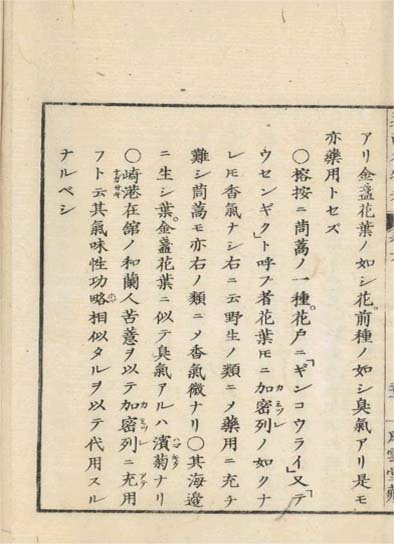 アリ金盞花葉ノ如シ花前種ノ如シ臭氣アリ是モ
亦藥用トセズ
〇榕按ニ茼蒿ノ一種。花戸ニ「ギンコウライ」又「テ
ウセンギク」ト呼ブ者花葉𪜈ニ加密列ノ如クナ
レ𪜈香氣ナシ右ニ云野生ノ類ニ〆藥用ニ充チ
難シ茼蒿モ亦右ノ類ニ〆香氣微ナリ〇其海邉
ニ生シ葉。金盞花葉ニ似テ臭氣アルハ濱菊ナリ
〇崎港在舘ノ和蘭人苦薏ヲ以テ加密列ニ充用
フト云其氣味性功略相似タルヲ以テ代用スル
ナルベシ